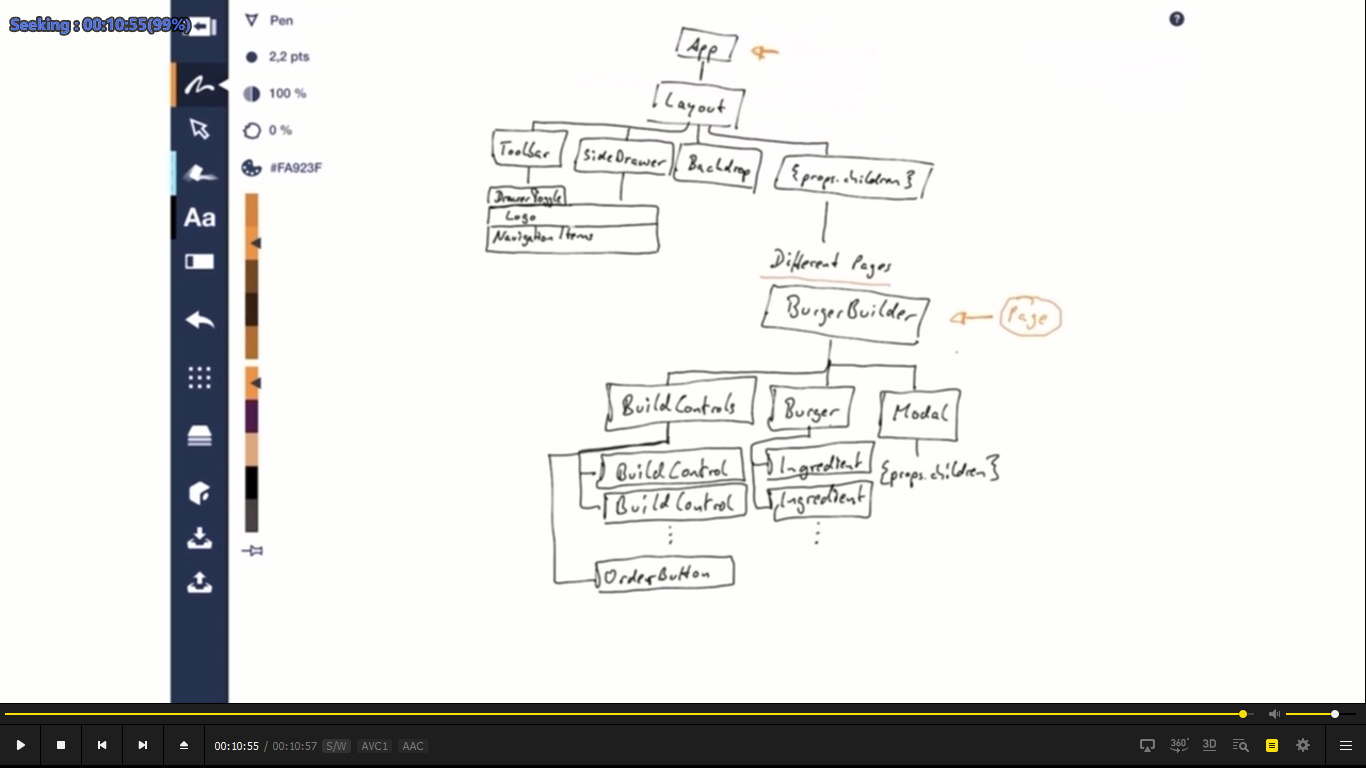 Seeking : 00:10:55(99%)
Pen
2,2 pts
100 %
0 %
#FA923F
Aa
?
App
Layout
Toolbar
SideDrawer
Backdrop
{props.children}
DrawerToggle
Logo
Navigation Items
Different Pages
BurgerBuilder
Page
BuildControls
Burger
Modal
BuildControl
Ingredient
{props.children}
BuildControl
Ingredient
OrderButton
00:10:55 / 00:10:57 S/W AVC1 AAC
360°
3D